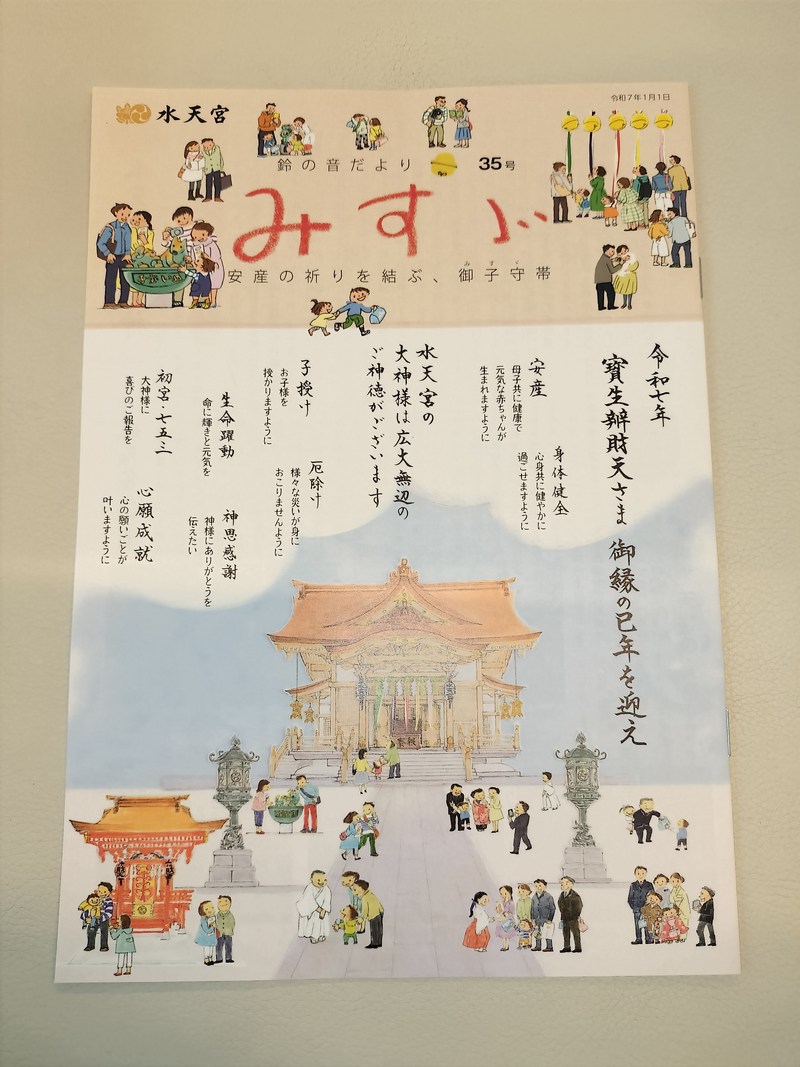 水天宮
令和7年1月1日
鈴の音だより
35号
みすゞ
安産の祈りを結ぶ、御子守帯
みすゞ
令和七年
寳生辦財天さま 御縁の巳年を迎え
安産
母子共に健康で
元気な赤ちゃんが
生まれますように
身体健全
心身共に健やかに
過ごせますように
水天宮の
大神様は広大無辺の
ご神徳がございます
子授け
お子様を
授かりますように
厄除け
様々な災いが身に
おこりませんように
生命躍動
命に輝きと元気を
神恩感謝
神様にありがとうを
伝えたい
初宮・七五三
大神様に
喜びのご報告を
心願成就
心の願いごとが
叶いますように